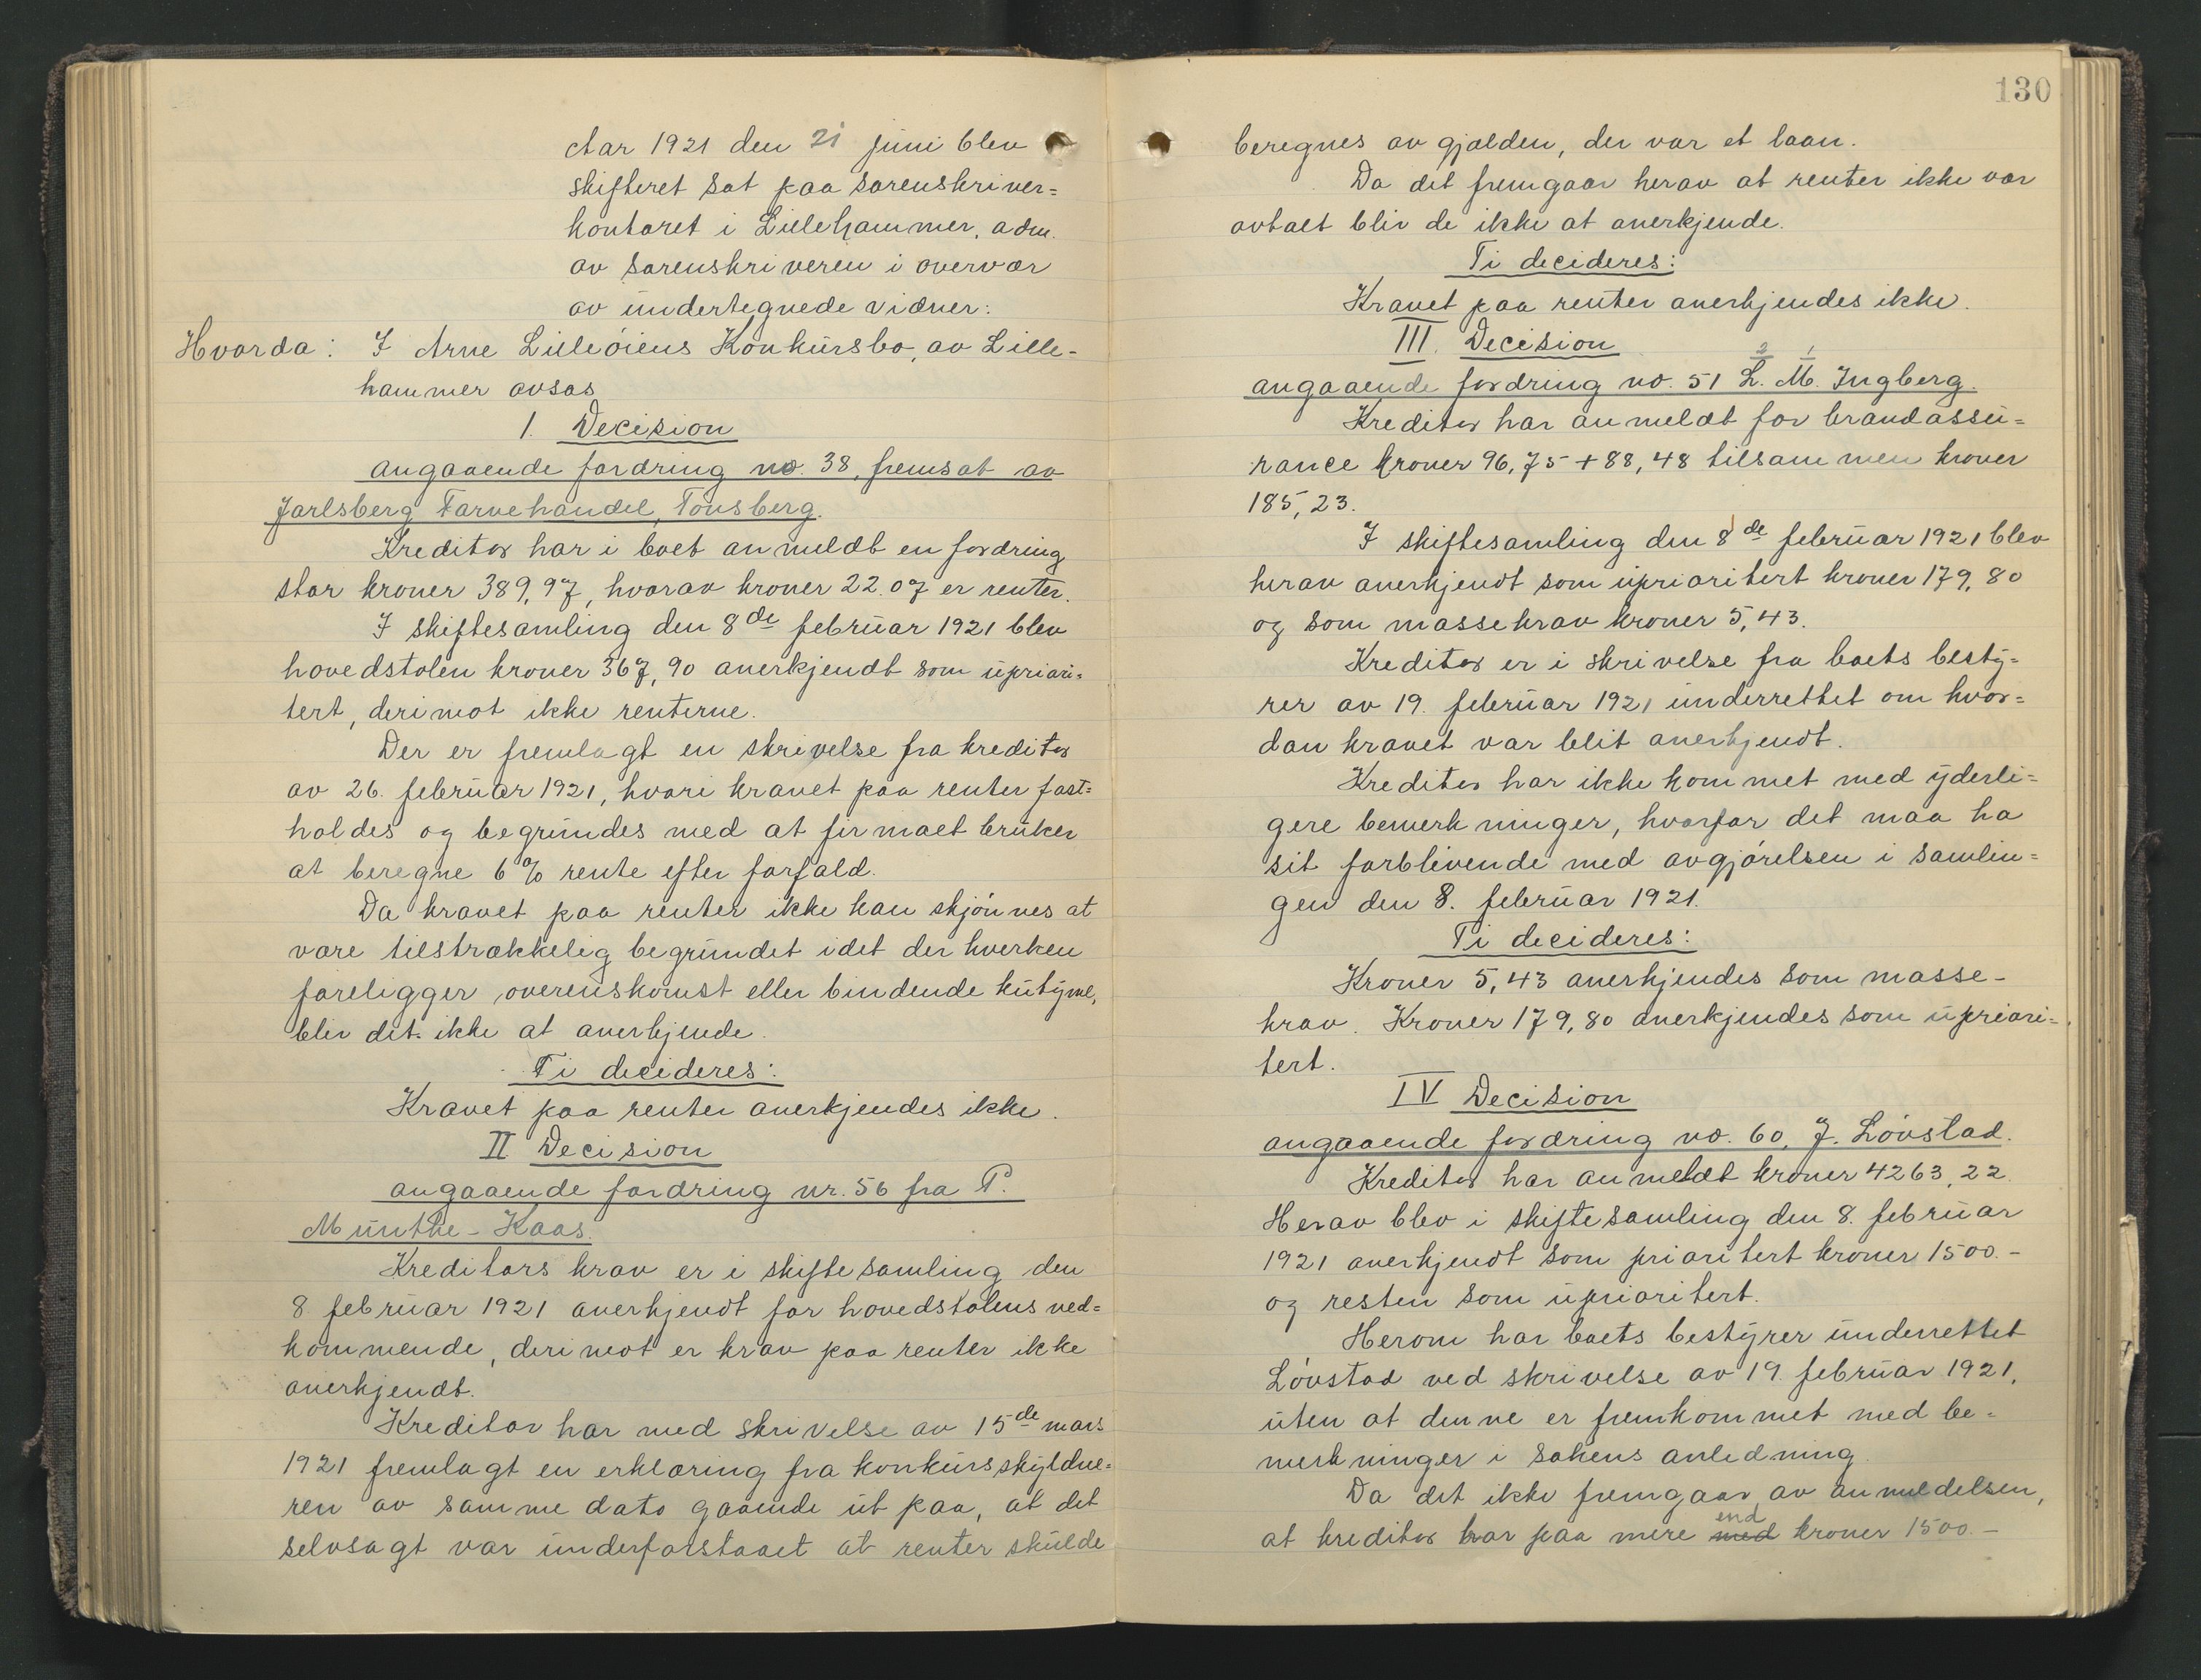 Aar 1921 den 21 juni blev
skifteret sat paa sorenskriver=
kontoret i Lillehammer, adm.
av sorenskriveren i overvær
av undertegnede vidner:
Hvorda: I Arne Lilleöiens Konkursbo, av Lille-
hammer avsas
1. Decision
angaaende fordring no. 38, fremsat av
Jarlsberg Farvehandel, Tönsberg.
Kreditor har i boet anmeldt en fordring
stor kroner 389,97, hvorav kroner 22.07 er renter.
I skiftesamling den 8de februar 1921 blev
hovedstolen kroner 367,90 anerkjendt som upriori=
tert, derimot ikke renterne.
Der er fremlagt en skrivelse fra kreditor
av 26. februar 1921, hvori kravet paa renter fast=
holdes og begrundes med at firmaet bruker
at beregne 6% rente efter forfald.
Da kravet paa renter ikke kan skjönnes at
være tilstrækkelig begrundet idet der hverken
foreligger overenskomst eller bindende kutyme,
blir det ikke at anerkjende.
Ti decideres:
Kravet paa renter anerkjendes ikke.
II Decision
angaaende fordring nr. 56 fra P.
Munthe-Kaas.
Kreditors krav er i skiftesamling den
8. februar 1921 anerkjendt for hovedstolens ved=
kommende, derimot er krav paa renter ikke
anerkjendt.
Kreditor har med skrivelse av 15de mars
1921 fremlagt en erklæring fra konkursskyldne=
ren av samme dato gaaende ut paa, at det
selvsagt var underforstaaet at renter skulde
130
beregnes av gjælden, der var et laan.
Da det fremgaar herav at renter ikke var
avtalt blir de ikke at anerkjende.
Ti decideres:
Kravet paa renter anerkjendes ikke.
III. Decision
2 1
angaaende fordring no. 51 L. M. Ingberg.
Kreditor har anmeldt for brandassu=
rance kroner 96,75 + 88,48 tilsammen kroner
185,23.
I skiftesamling den 8de februar 1921 blev
herav anerkjendt som uprioritert kroner 179,80
og som massekrav kroner 5,43.
Kreditor er i skrivelse fra boets besty=
rer av 19. februar 1921 underrettet om hvor=
dan kravet var blit anerkjendt.
Kreditor har ikke kommet med yderli=
gere bemerkninger, hvorfor det maa ha
sit forblivende med avgjörelsen i samlin=
gen den 8. februar 1921.
Ti decideres:
Kroner 5,43 anerkjendes som masse-
krav. Kroner 179,80 anerkjendes som upriori=
tert.
IV Decision
angaaende fordring no. 60, J. Lövstad.
Kreditor har anmeldt kroner 4263,22.
Herav blev i skiftesamling den 8. februar
1921 anerkjendt som prioritert kroner 1500.-
og resten som uprioritert.
Herom har boets bestyrer underrettet
Lövstad ved skrivelse av 19. februar 1921,
uten at denne er fremkommet med be=
merkninger i sakens anledning.
Da det ikke fremgaar av anmeldelsen,
end
at kreditor har paa mere med kroner 1500.-